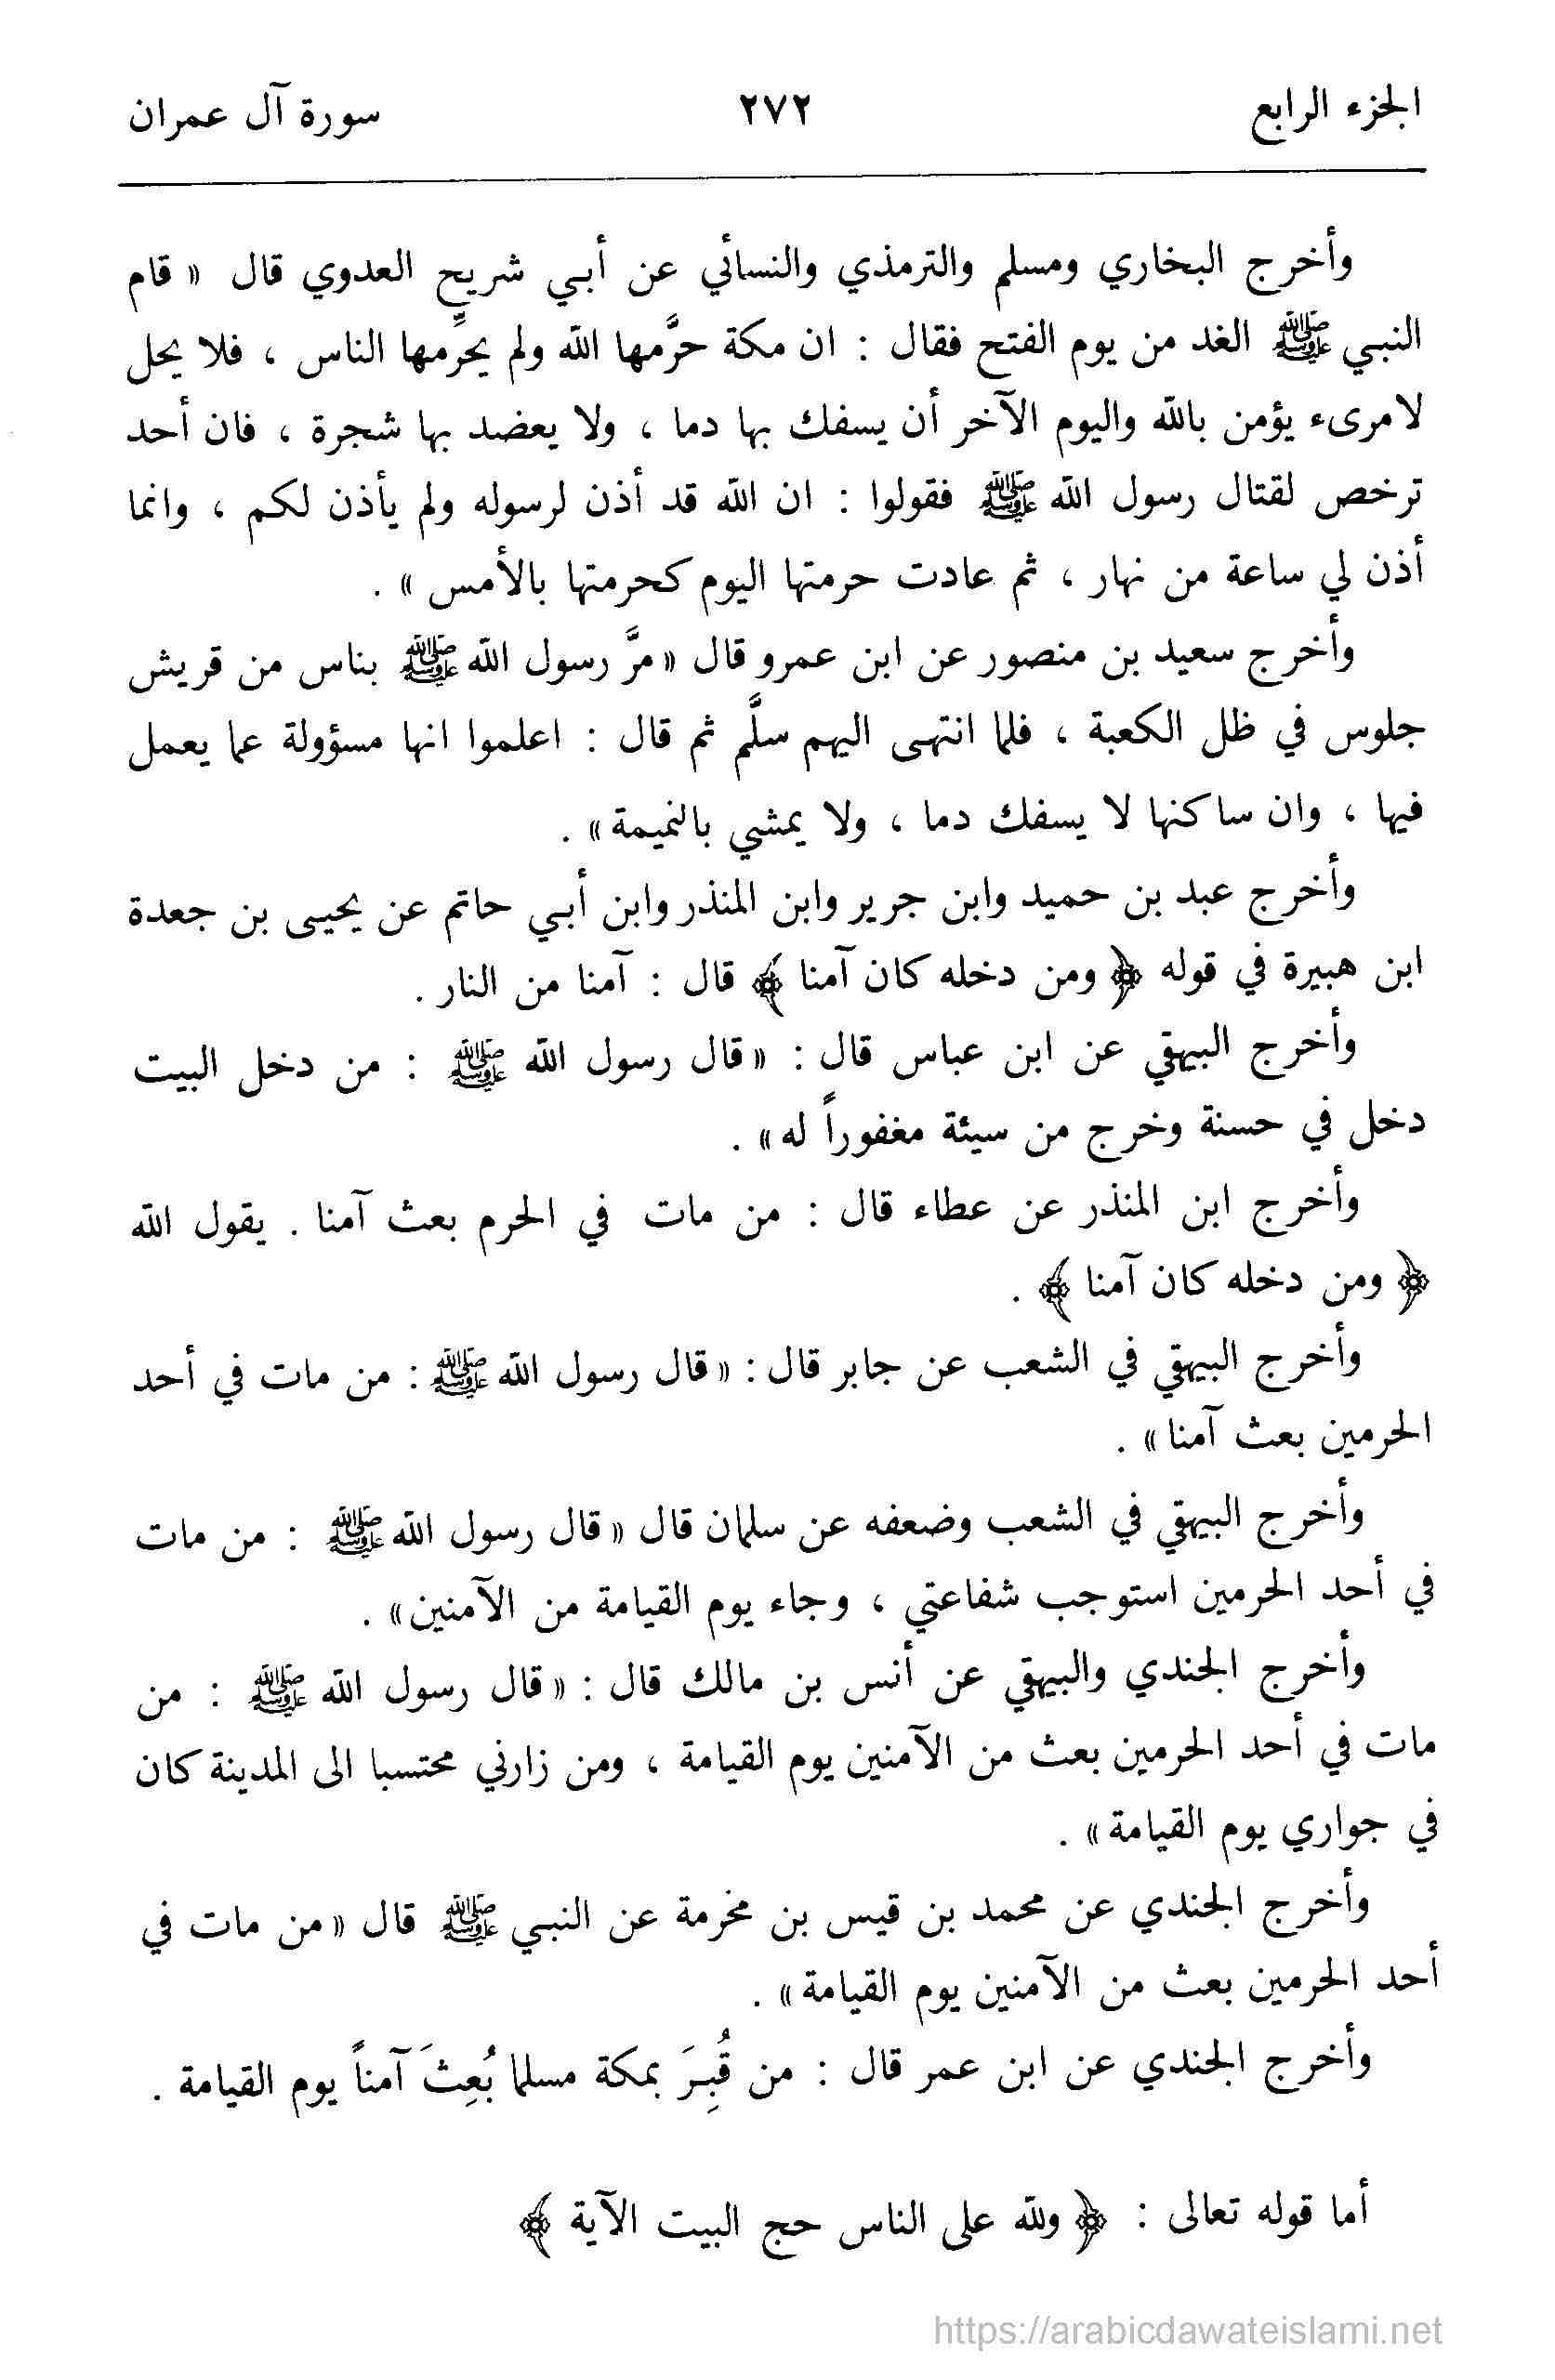 الجزء الرابع ٢٧٢ سورة آل عمران
وأخرج البخاري ومسلم والترمذي والنسائي عن أبي شريح العدوي قال « قام
النبي ﷺ الغد من يوم الفتح فقال : ان مكة حرَّمها الله ولم يحرِّمها الناس ، فلا يحل
لامرىء يؤمن بالله واليوم الآخر أن يسفك بها دما ، ولا يعضد بها شجرة ، فان أحد
ترخص لقتال رسول الله ﷺ فقولوا : ان الله قد أذن لرسوله ولم يأذن لكم ، وانما
أذن لي ساعة من نهار ، ثم عادت حرمتها اليوم كحرمتها بالأمس » .
وأخرج سعيد بن منصور عن ابن عمرو قال « مرَّ رسول الله ﷺ بناس من قريش
جلوس في ظل الكعبة ، فلما انتهى اليهم سلَّم ثم قال : اعلموا انها مسؤولة عما يعمل
فيها ، وان ساكنها لا يسفك دما ، ولا يمشي بالنميمة » .
وأخرج عبد بن حميد وابن جرير وابن المنذر وابن أبي حاتم عن يحيى بن جعدة
ابن هبيرة في قوله ﴿ ومن دخله كان آمنا ﴾ قال : آمنا من النار .
وأخرج البيهقي عن ابن عباس قال : « قال رسول الله ﷺ : من دخل البيت
دخل في حسنة وخرج من سيئة مغفوراً له » .
وأخرج ابن المنذر عن عطاء قال : من مات في الحرم بعث آمنا . يقول الله
﴿ ومن دخله كان آمنا ﴾ .
وأخرج البيهقي في الشعب عن جابر قال : « قال رسول الله ﷺ : من مات في أحد
الحرمين بعث آمنا » .
وأخرج البيهقي في الشعب وضعفه عن سلمان قال « قال رسول الله ﷺ : من مات
في أحد الحرمين استوجب شفاعتي ، وجاء يوم القيامة من الآمنين » .
وأخرج الجندي والبيهقي عن أنس بن مالك قال : « قال رسول الله ﷺ : من
مات في أحد الحرمين بعث من الآمنين يوم القيامة ، ومن زارني محتسبا الى المدينة كان
في جواري يوم القيامة » .
وأخرج الجندي عن محمد بن قيس بن مخرمة عن النبي ﷺ قال « من مات في
أحد الحرمين بعث من الآمنين يوم القيامة » .
وأخرج الجندي عن ابن عمر قال : من قُبِرَ بمكة مسلما بُعِثَ آمناً يوم القيامة .
أما قوله تعالى : ﴿ ولله على الناس حج البيت الآية ﴾
https://arabicdawateislami.net